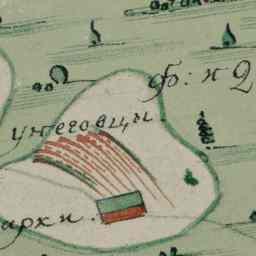 ф: н 2
унеговцы.
архи.